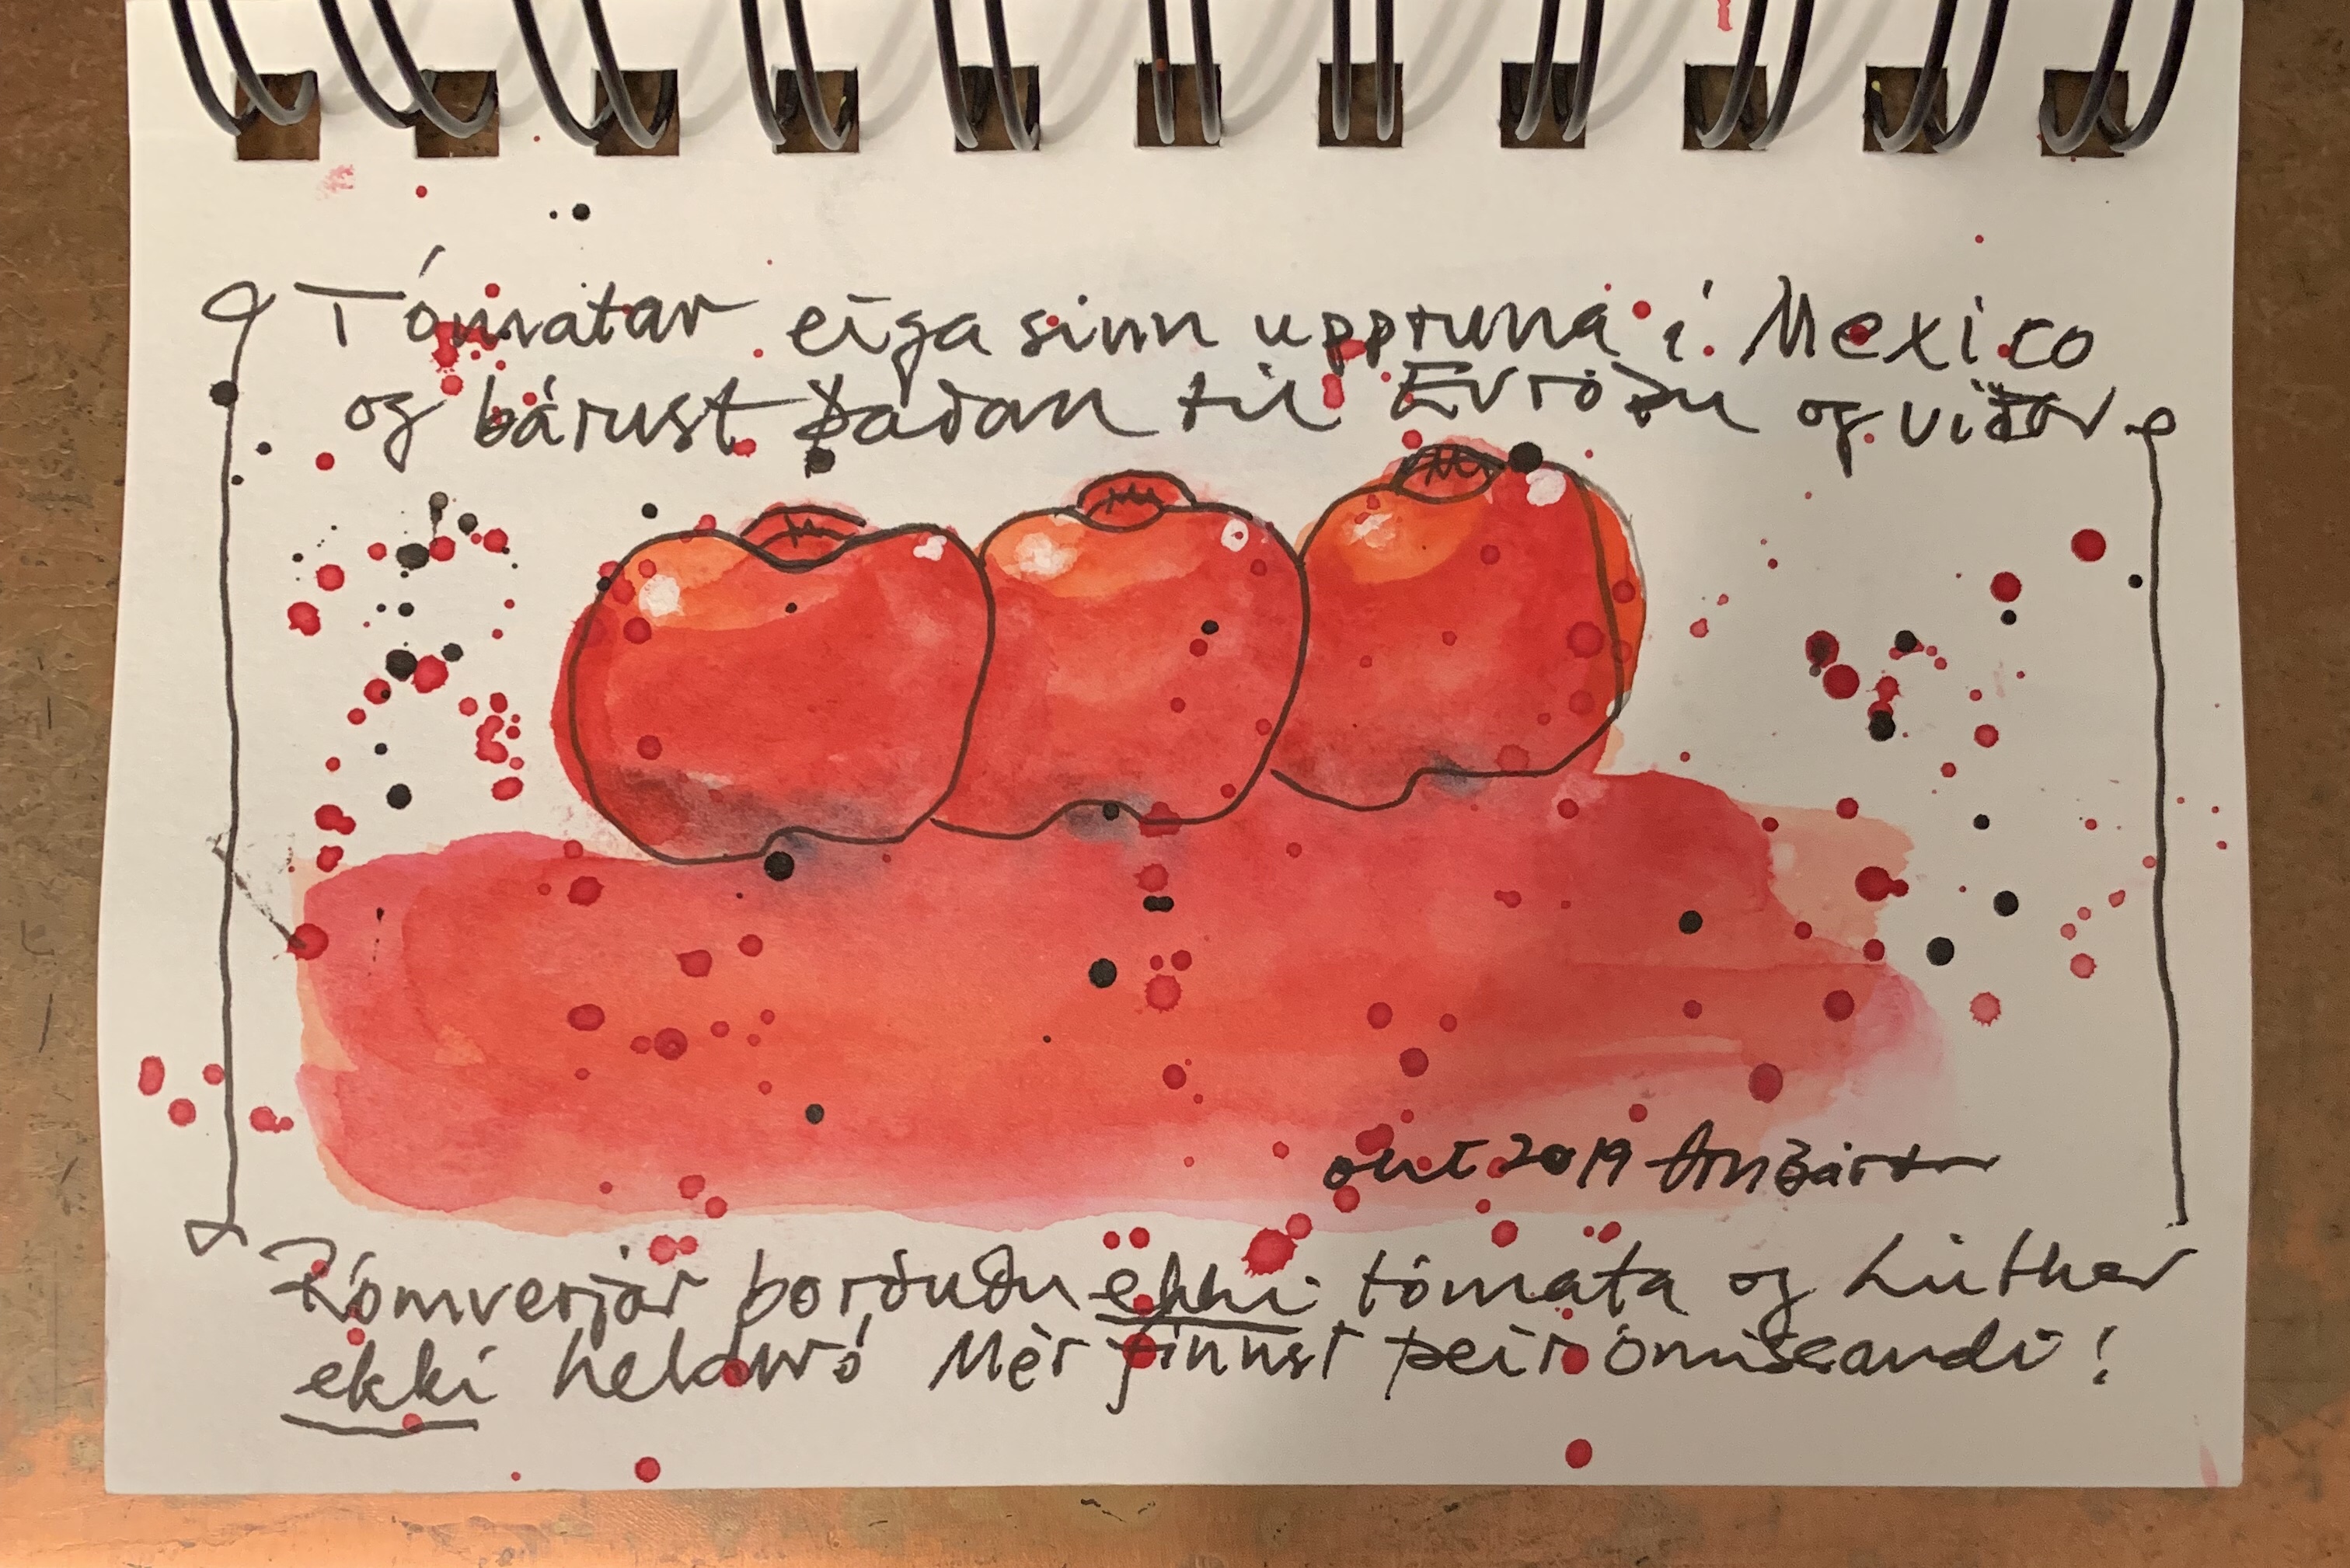 Tómatar eiga sinn uppruna í Mexico
og bárust þaðan til Evrópu og víðar
okt 2019
Rómverjar borðuðu ekki tómata og Luther
ekki heldur! Mér finnst þeir ómissandi!